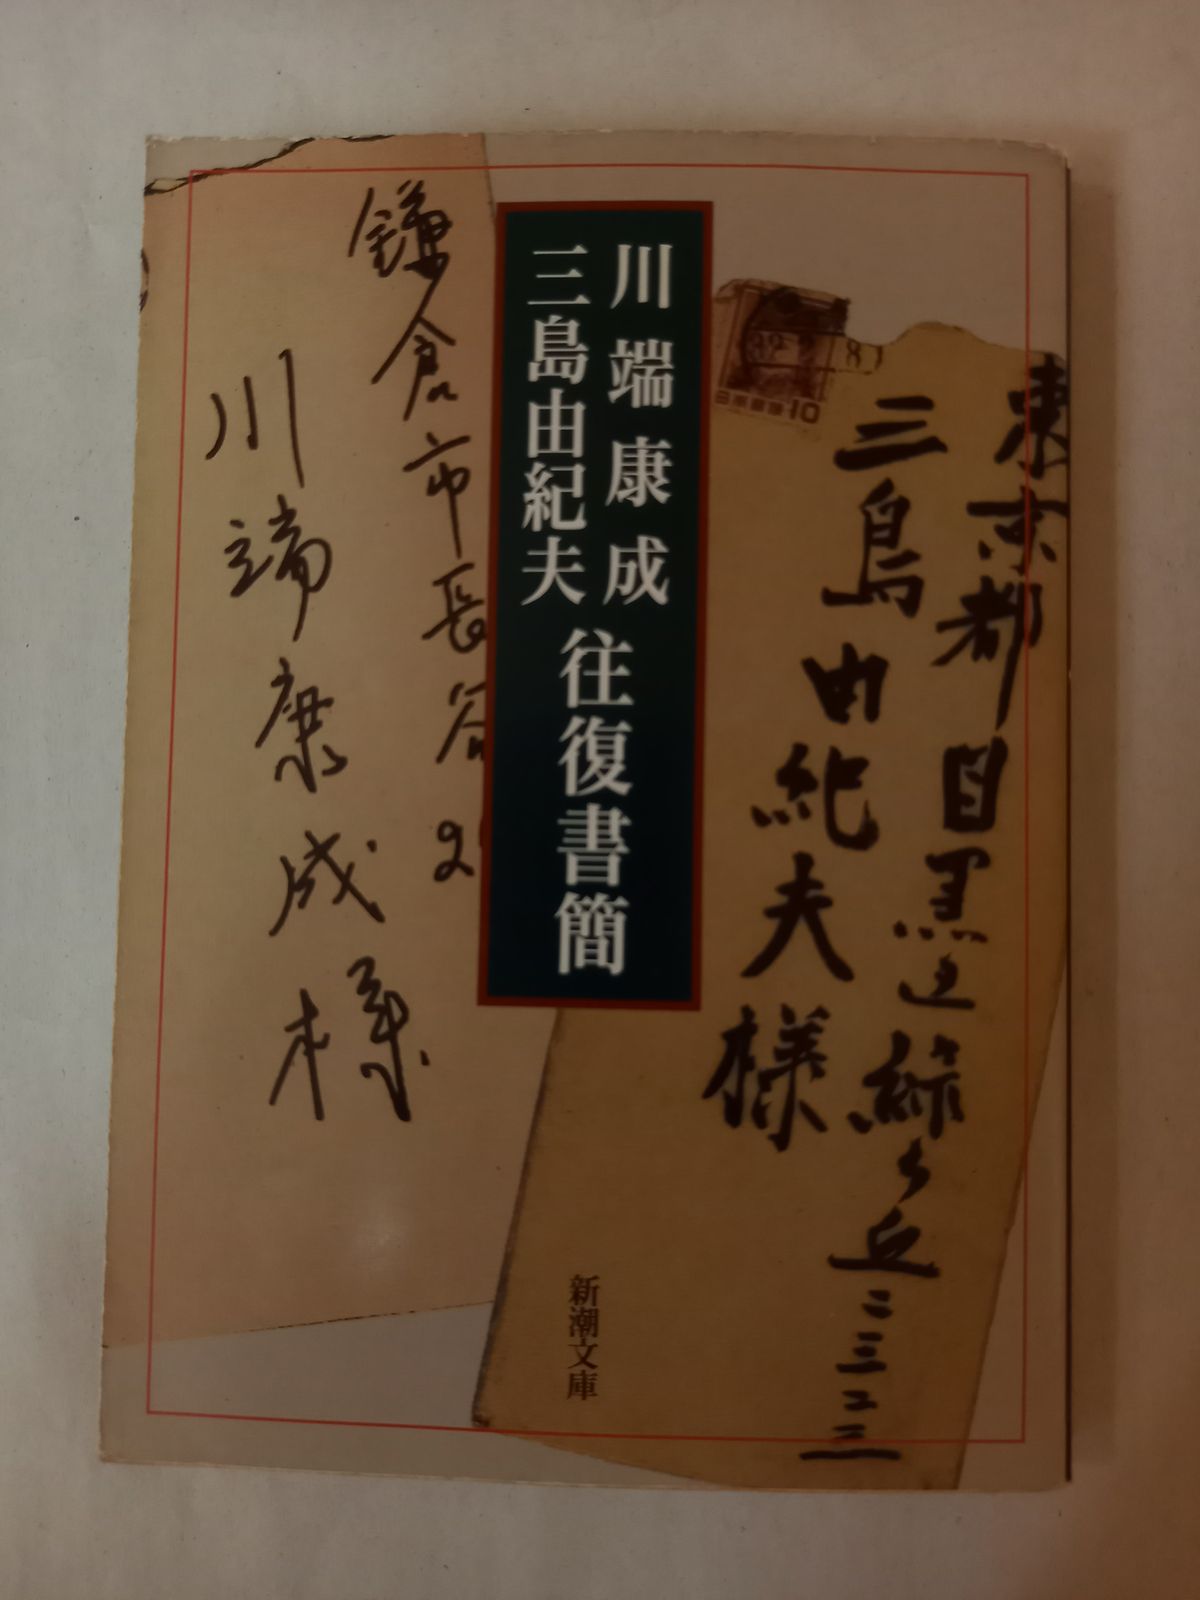 川端康成
三島由紀夫
往復書簡
東京都目黒区緑ヶ丘二三二三
三島由紀夫様
日本郵便 10
鎌倉市長谷2
川端康成様
新潮文庫